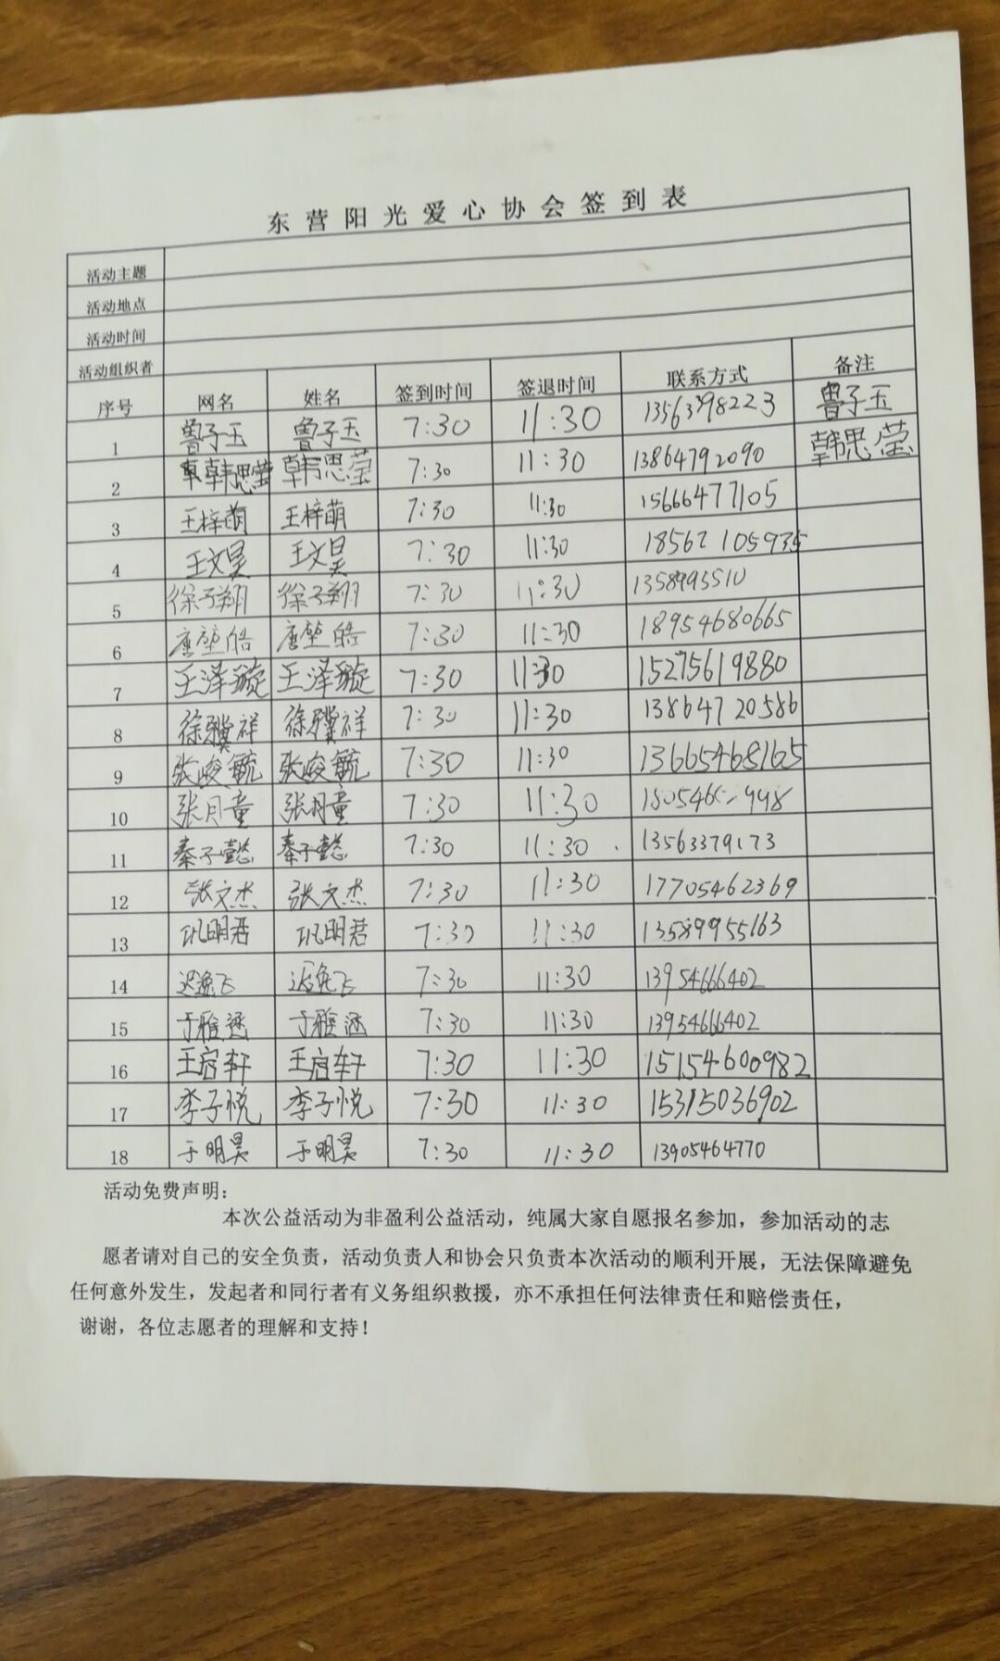 东营阳光爱心协会签到表
活动主题
活动地点
活动时间
活动组织者
序号 网名 姓名 签到时间 签退时间 联系方式 备注
1 鲁子玉 鲁子玉 7:30 11:30 13563398223 鲁子玉
2 韩思莹 韩思莹 7:30 11:30 13864792090 韩思莹
3 王梓萌 王梓萌 7:30 11:30 15666477105
4 王文昊 王文昊 7:30 11:30 18562105935
5 徐子翔 徐子翔 7:30 11:30 1358993510
6 唐堃皓 唐堃皓 7:30 11:30 18954680665
7 王泽璇 王泽璇 7:30 11:30 15275619880
8 徐骥祥 徐骥祥 7:30 11:30 13864720586
9 张峻毓 张峻毓 7:30 11:30 13665468165
10 张月童 张月童 7:30 11:30
11 秦子懿 秦子懿 7:30 11:30 13563379173
12 张文杰 张文杰 7:30 11:30 17705462369
13 巩明君 巩明君 7:30 11:30 13589955163
14 7:30 11:30 13954666402
15 于雅涵 于雅涵 7:30 11:30 13954666402
16 王启轩 王启轩 7:30 11:30 15154600982
17 李子悦 李子悦 7:30 11:30 15315036902
18 于明昊 于明昊 7:30 11:30 13905464770
活动免费声明：
本次公益活动为非盈利公益活动，纯属大家自愿报名参加，参加活动的志
愿者请对自己的安全负责，活动负责人和协会只负责本次活动的顺利开展，无法保障避免
任何意外发生，发起者和同行者有义务组织救援，亦不承担任何法律责任和赔偿责任，
谢谢，各位志愿者的理解和支持！